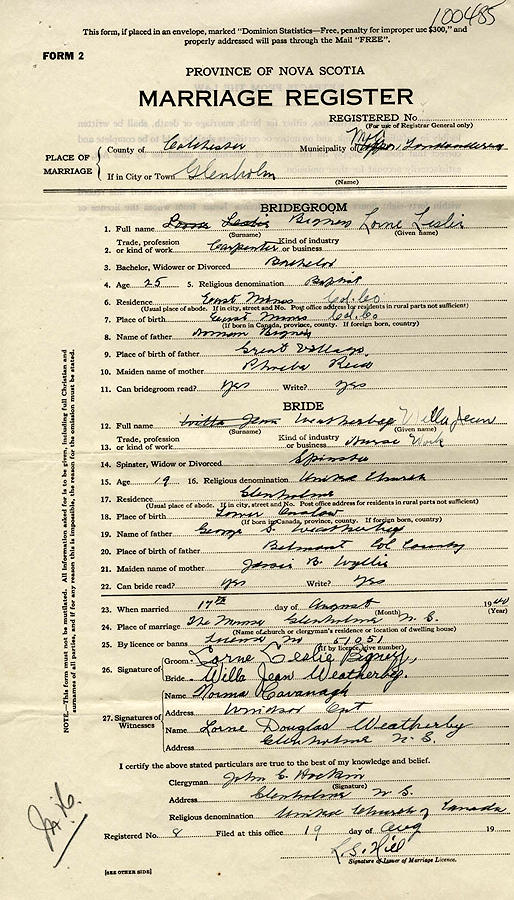 100485
This form, if placed in an envelope, marked "Dominion Statistics—Free, penalty for improper use $300," and
properly addressed will pass through the Mail "FREE".
FORM 2
PROVINCE OF NOVA SCOTIA
MARRIAGE REGISTER
REGISTERED No.
(For use of Registrar General only)
PLACE OF MARRIAGE
County of Colchester Municipality of Londonderry
If in City or Town Glenholm
(Name)
BRIDEGROOM
1. Full name Lorne Leslie Bigney Lorne Leslie
(Surname) (Given name)
Trade, profession Kind of industry
2. or kind of work Carpenter or business
3. Bachelor, Widower or Divorced Bachelor
4. Age 25 5. Religious denomination Baptist
6. Residence East Mines Col. Co
(Usual place of abode. If in city, street and No. Post office address for residents in rural parts not sufficient)
7. Place of birth East Mines Col. Co
(If born in Canada, province, county. If foreign born, country)
8. Name of father Bigney
9. Place of birth of father Great Village
10. Maiden name of mother Phoebe Reid
11. Can bridegroom read? Yes Write? Yes
BRIDE
12. Full name Willa Jean Weatherby Willa Jean
(Surname) (Given name)
Trade, profession Kind of industry
13. or kind of work or business House Work
14. Spinster, Widow or Divorced Spinster
15. Age 19 16. Religious denomination United Church
17. Residence Glenholme
(Usual place of abode. If in city, street and No. Post office address for residents in rural parts not sufficient)
18. Place of birth Lower Onslow
(If born in Canada, province, county. If foreign born, country)
19. Name of father George S. Weatherby
20. Place of birth of father Belmont Col County
21. Maiden name of mother Jessie B. Wyllie
22. Can bride read? Yes Write? Yes
23. When married 17th day of August 1944
(Month) (Year)
24. Place of marriage The Manse Glenholme N. S.
(Name of church or clergyman's residence or location of dwelling house)
25. By licence or banns License No 51051
(If by licence, give number)
26. Signature of
Groom Lorne Leslie Bigney,
Bride Willa Jean Weatherby.
27. Signatures of Witnesses
Name Norma Cavanagh
Address Windsor Ont
Name Lorne Douglas Weatherby
Address Glenholme N. S.
I certify the above stated particulars are true to the best of my knowledge and belief.
Clergyman John C. Hockin
(Signature)
Address Glenholme N. S.
Religious denomination United Church of Canada
Registered No. 8 Filed at this office 19 day of Aug 19
L. S. Hill
Signature of Issuer of Marriage Licence.
[SEE OTHER SIDE]
NOTE.—This form must not be mutilated. All information asked for is to be given, including full Christian and
surnames of all parties, and if for any reason this is impossible, the reason for the omission must be stated.